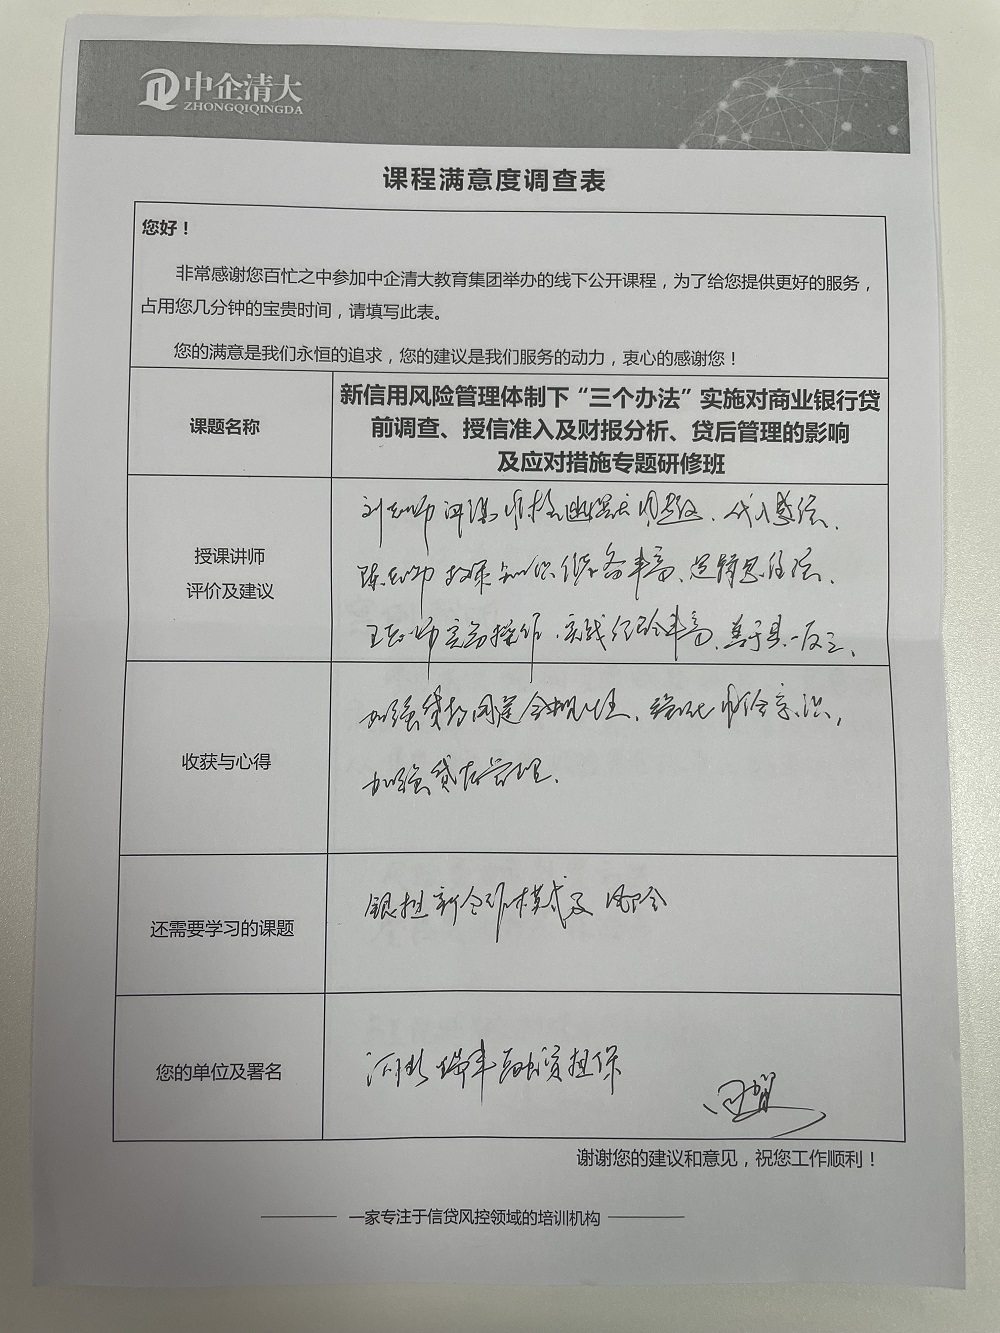 中企清大
ZHONGQIQINGDA
课程满意度调查表
您好！
非常感谢您百忙之中参加中企清大教育集团举办的线下公开课程，为了给您提供更好的服务，
占用您几分钟的宝贵时间，请填写此表。
您的满意是我们永恒的追求，您的建议是我们服务的动力，衷心的感谢您！
课题名称
新信用风险管理体制下“三个办法”实施对商业银行贷
前调查、授信准入及财报分析、贷后管理的影响
及应对措施专题研修班
授课讲师
评价及建议
刘老师 幽默 风趣、代入感强、
陈老师 知识储备丰富、逻辑思维强、
王老师实务操作、实践经验丰富、善于举一反三、
收获与心得
加强贷 合规性、强化风险意识，
加强贷后管理.
还需要学习的课题
银担新合作模式及风险
您的单位及署名
河北瑞丰融资担保
谢谢您的建议和意见，祝您工作顺利！
一家专注于信贷风控领域的培训机构